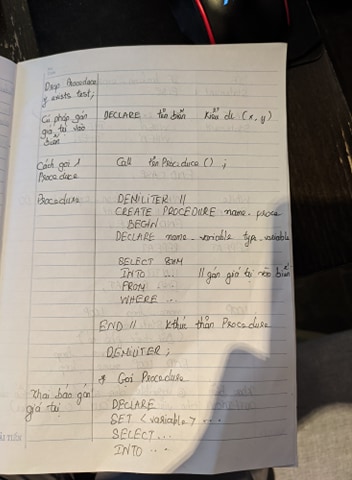 Drop Procedure
y exists test;
Cú pháp gán
giá trị vào
biến
DECLARE tên biến kiểu dl (x, y)
Cách gọi 1
Procedure
Call tên Procedure () ;
Procedure
DEMILITER //
CREATE PROCEDURE name_proce
BEGIN
DECLARE name_variable type_variable
SELECT
INTO ... // gán giá trị vào biến
FROM ...
WHERE ..
END // kthúc thân Procedure
DEMILITER ;
Gọi Procedure
Khai báo gán
giá trị
DECLARE
SET < variable > ...
SELECT ...
INTO ...